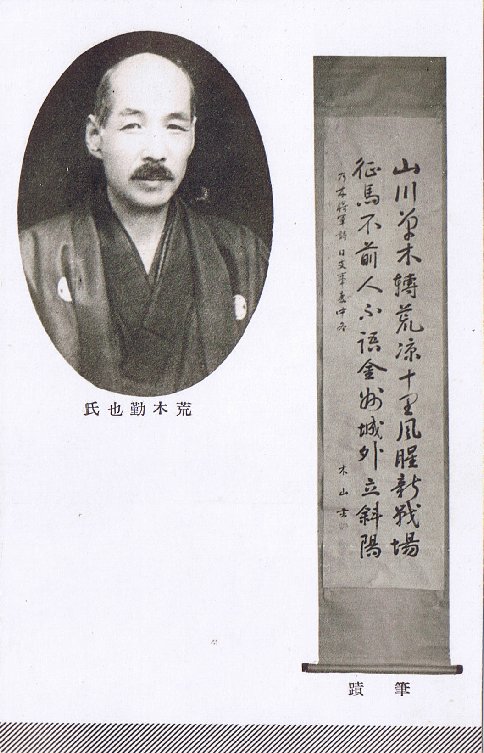 荒木勤也氏
山川草木轉荒凉十里風腥新戰場
征馬不前人不語金州城外立斜陽
乃木将軍詩 日支事変中
木山
筆蹟